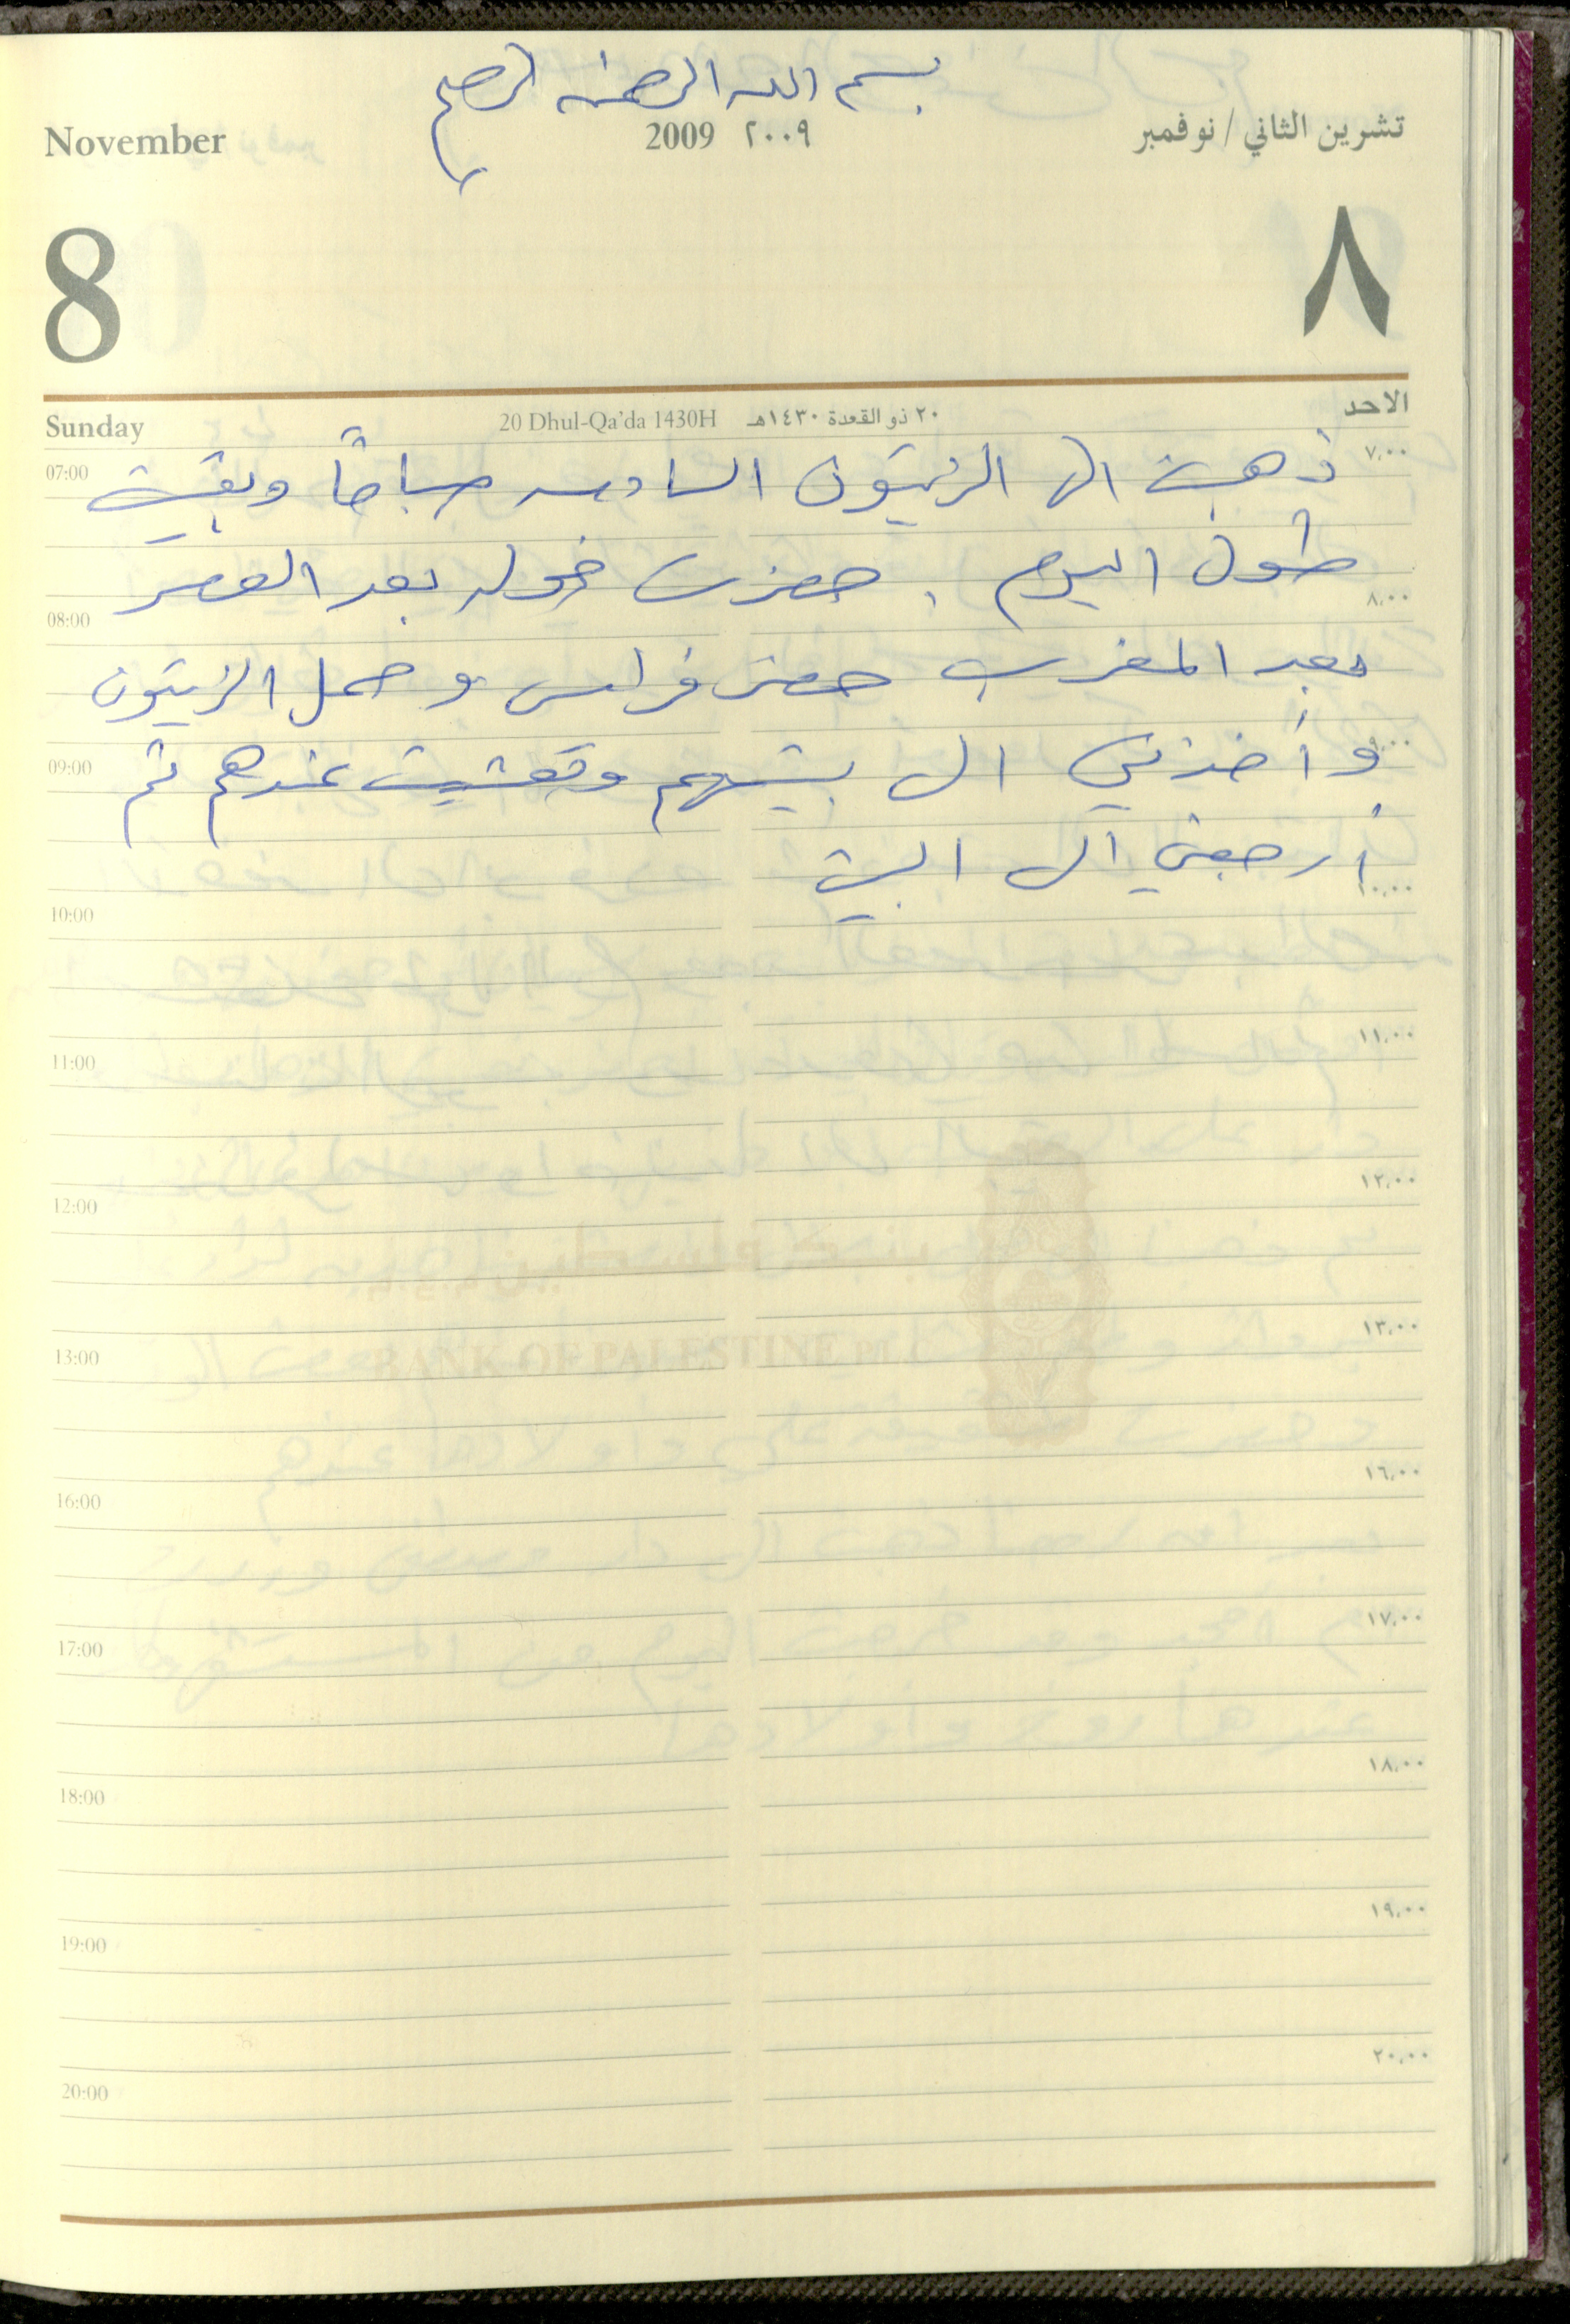 بسم الله الرحمن الرحيم
November 2009 ٢٠٠٩ تشرين الثاني / نوفمبر
8 ٨
Sunday 20 Dhul-Qa'da 1430H ٢٠ ذو القعدة ١٤٣٠هـ الاحد
07:00 ٧,٠٠
ذهبت الى الزيتون السادسه صباحاً وبقيت
طول اليوم . حضرت خوله بعد العصر
08:00 ٨,٠٠
بعد المغرب حضر فراس وحمل الزيتون
09:00 ٩,٠٠
وأخذني الى بيتهم وتعشيت عندهم ثم
أرجعني الى البيت
10:00 ١٠,٠٠
11:00 ١١,٠٠
12:00 ١٢,٠٠
بنك فلسطين
13:00 ١٣,٠٠
BANK OF PALESTINE PLC
16:00 ١٦,٠٠
17:00 ١٧,٠٠
18:00 ١٨,٠٠
19:00 ١٩,٠٠
20:00 ٢٠,٠٠